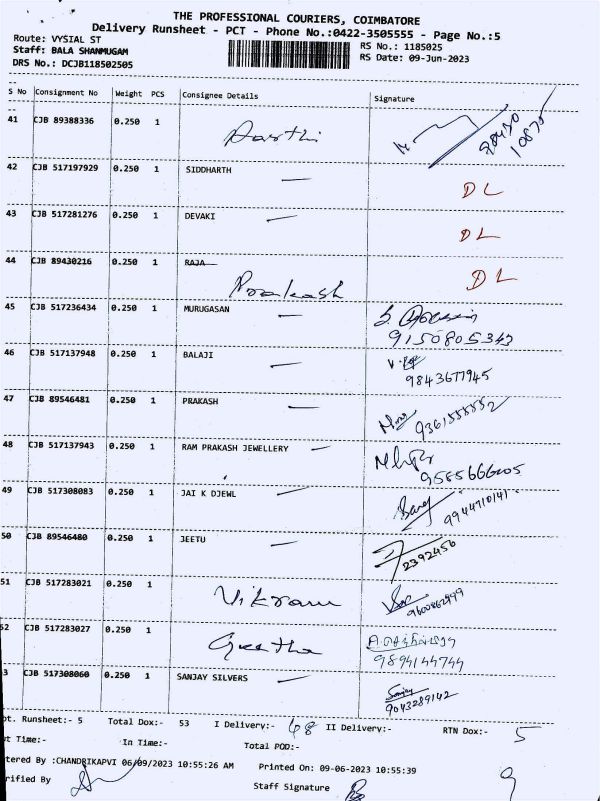 THE PROFESSIONAL COURIERS, COIMBATORE
Delivery Runsheet - PCT - Phone No.:0422-3505555 - Page No.:5
Route: VYSIAL ST
RS No.: 1185025
Staff: BALA SHANMUGAM
RS Date: 09-Jun-2023
DRS No.: DCJB118502505
S No Consignment No Weight PCS Consignee Details Signature
41 CJB 89388336 0.250 1 Aarthi 98430 10875
42 CJB 517197929 0.250 1 SIDDHARTH — DL
43 CJB 517281276 0.250 1 DEVAKI — DL
44 CJB 89430216 0.250 1 RAJA Prakash DL
45 CJB 517236434 0.250 1 MURUGASAN —
46 CJB 517137948 0.250 1 BALAJI — 9843677945
47 CJB 89546481 0.250 1 PRAKASH —
48 CJB 517137943 0.250 1 RAM PRAKASH JEWELLERY —
49 CJB 517308083 0.250 1 JAI K DJEWL — 9944710141
50 CJB 89546480 0.250 1 JEETU — 2392456
51 CJB 517283021 0.250 1 Vikram
52 CJB 517283027 0.250 1 Geetha 9894144744
3 CJB 517308060 0.250 1 SANJAY SILVERS Sanjay 9043289142
ot. Runsheet:- 5 Total Dox:- 53 I Delivery:- 48 II Delivery:- RTN Dox:- 5
ut Time:- In Time:- Total POD:-
tered By :CHANDRIKAPVI 06/09/2023 10:55:26 AM Printed On: 09-06-2023 10:55:39
rified By Staff Signature 9